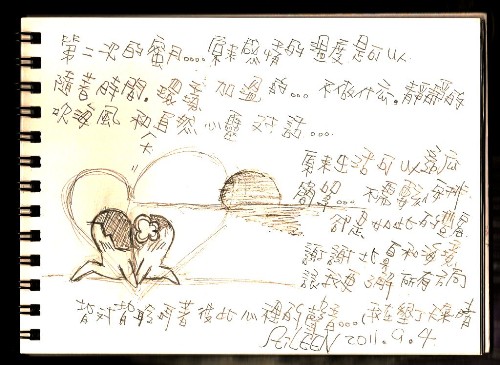 第二次的蜜月.... 原來感情的溫度是可以
隨著時間. 環境 加溫的... 不做什么. 靜靜的
吹海風 和自然心靈對話 ...
原來生活可以這麼
簡單... 不需要安排
卻是如此的
謝謝北真和海
讓我更了解所有方向
背對背聆聽著彼此心裡的聲音... 大集晴
AiLEEN 2011.9.4